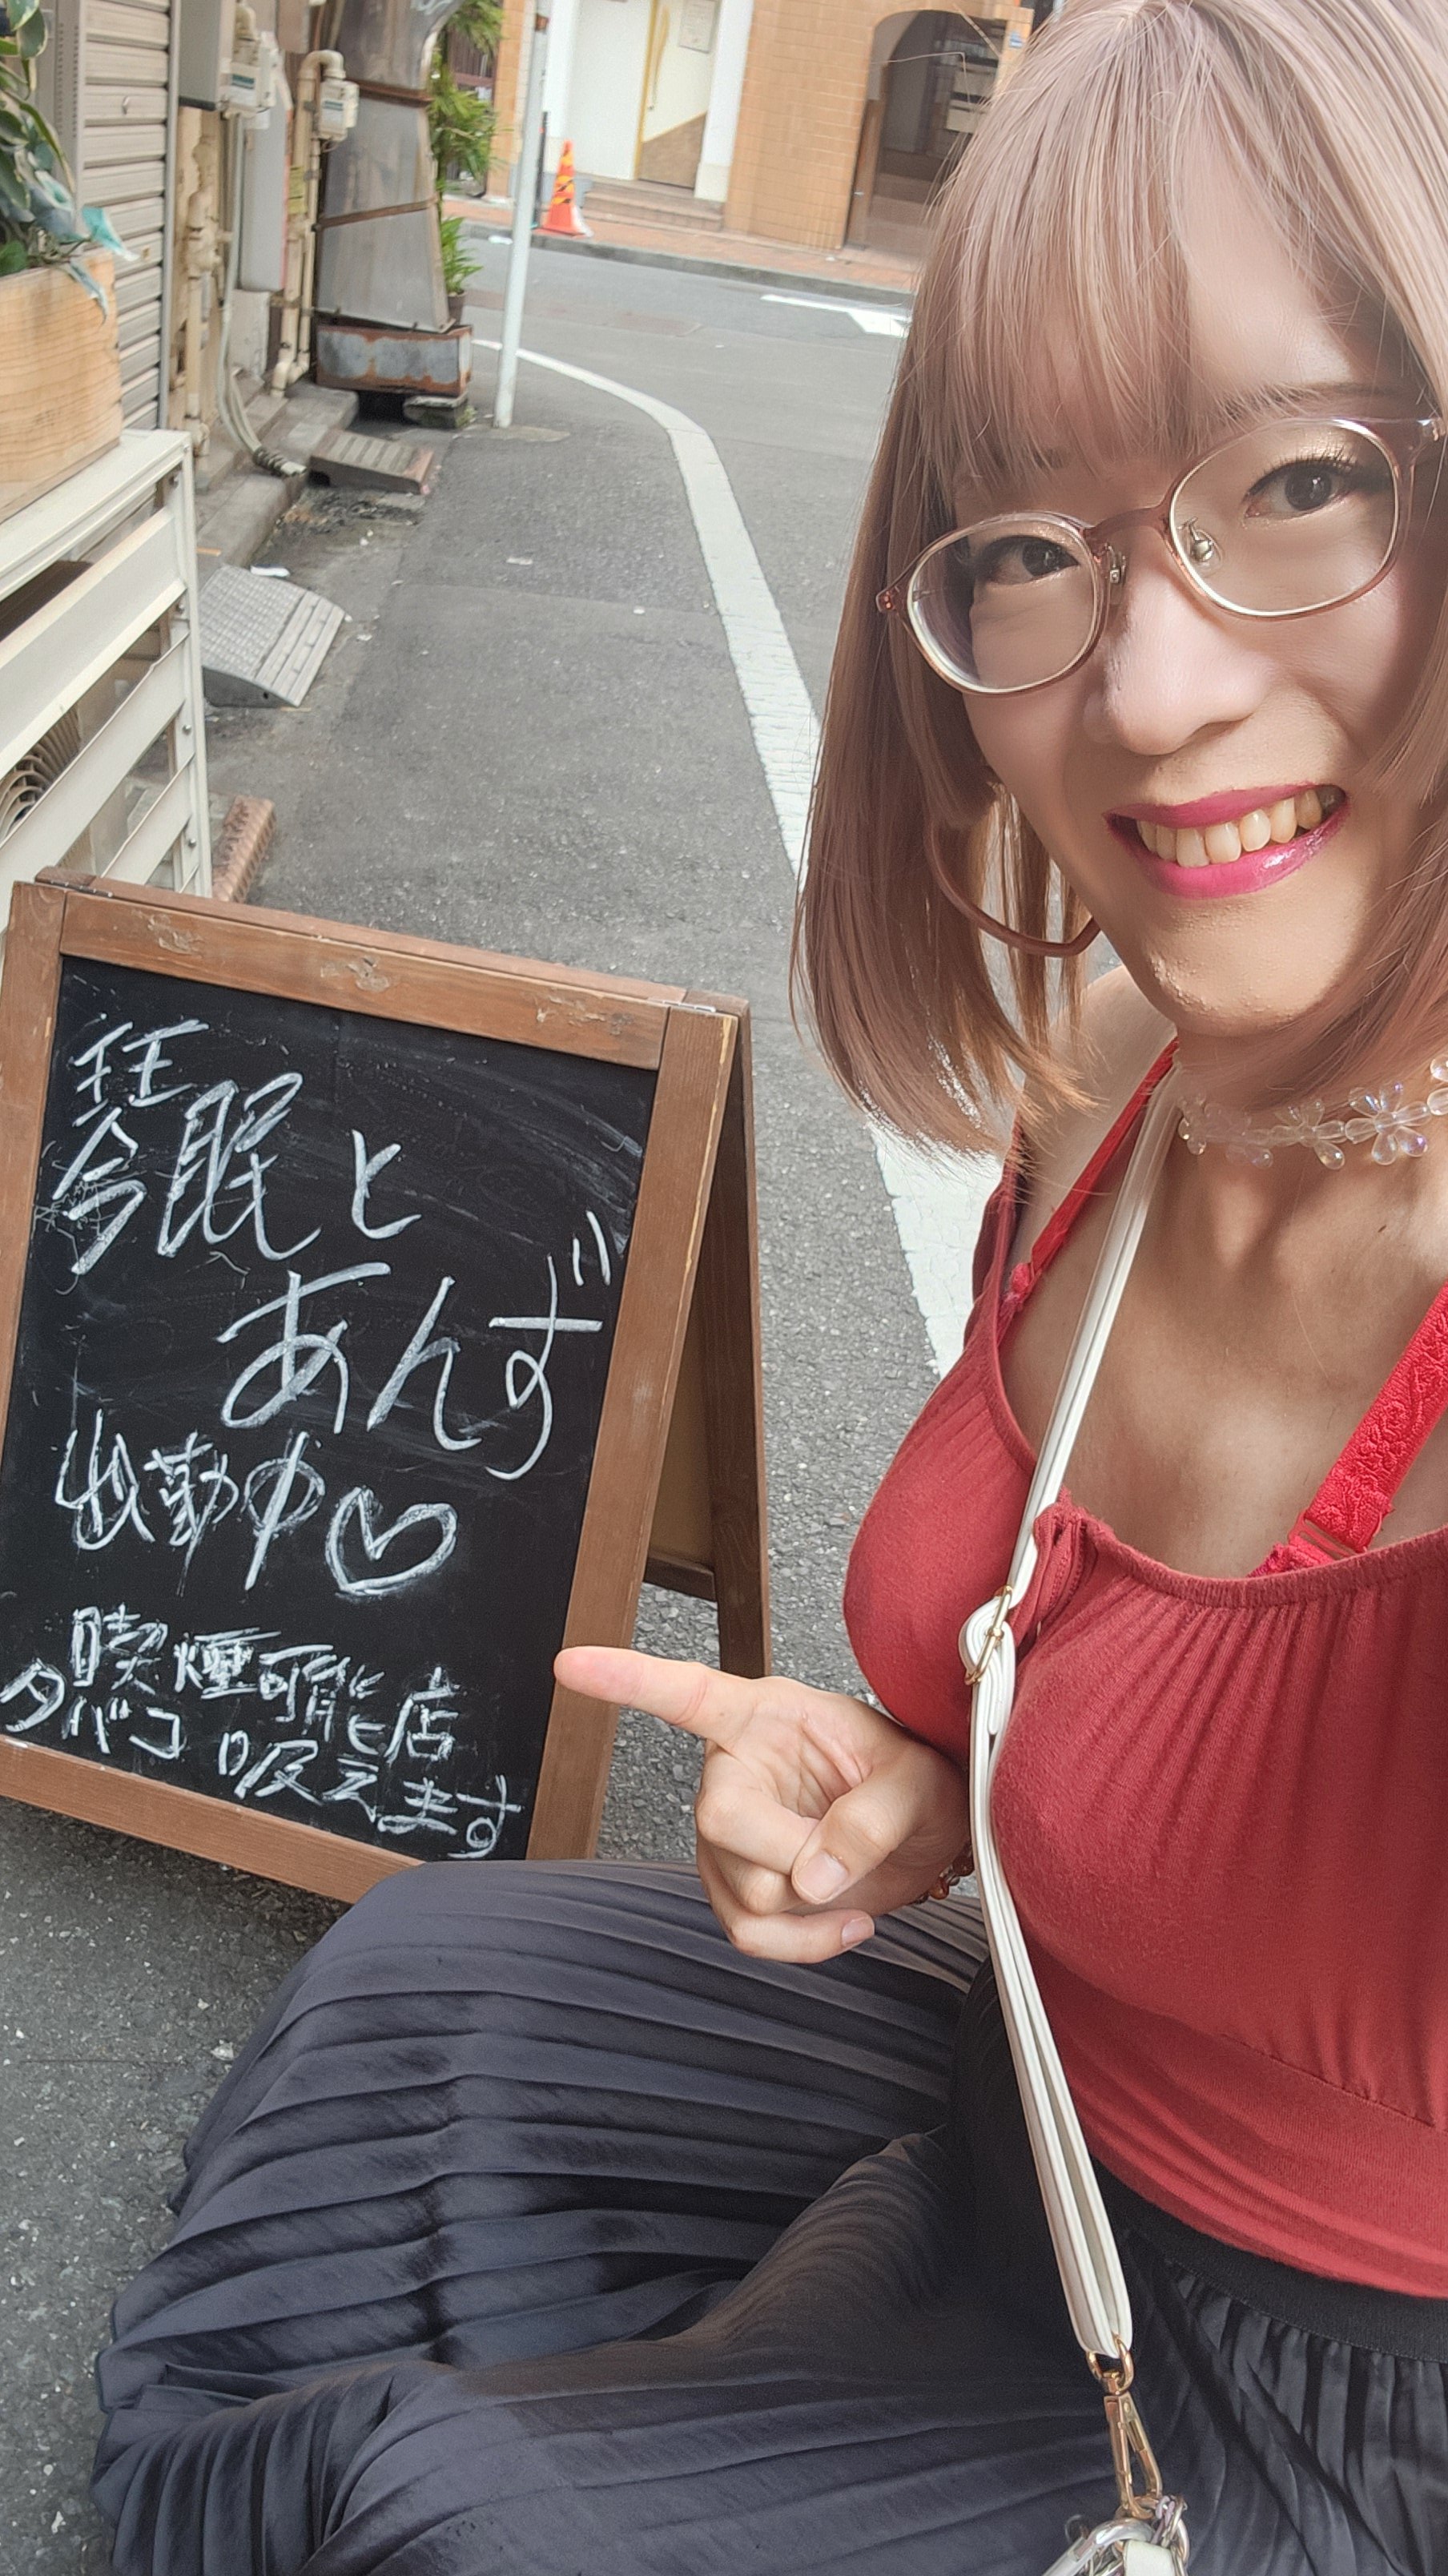 琴眠と
あんず
出勤中♡
喫煙可能店
タバコ吸えます